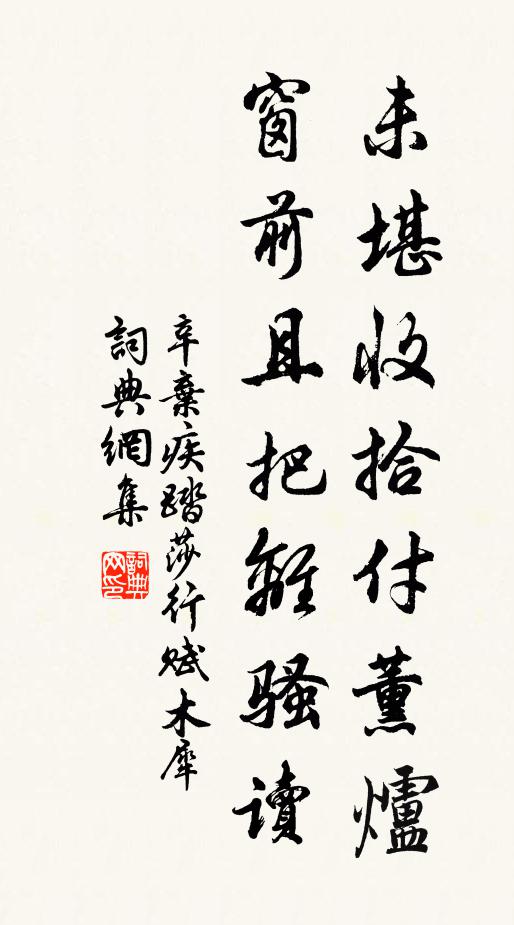 未堪收拾付薰爐
窗前且把離騷讀
辛棄疾踏莎行賦木犀
詞典網集
詞典網印